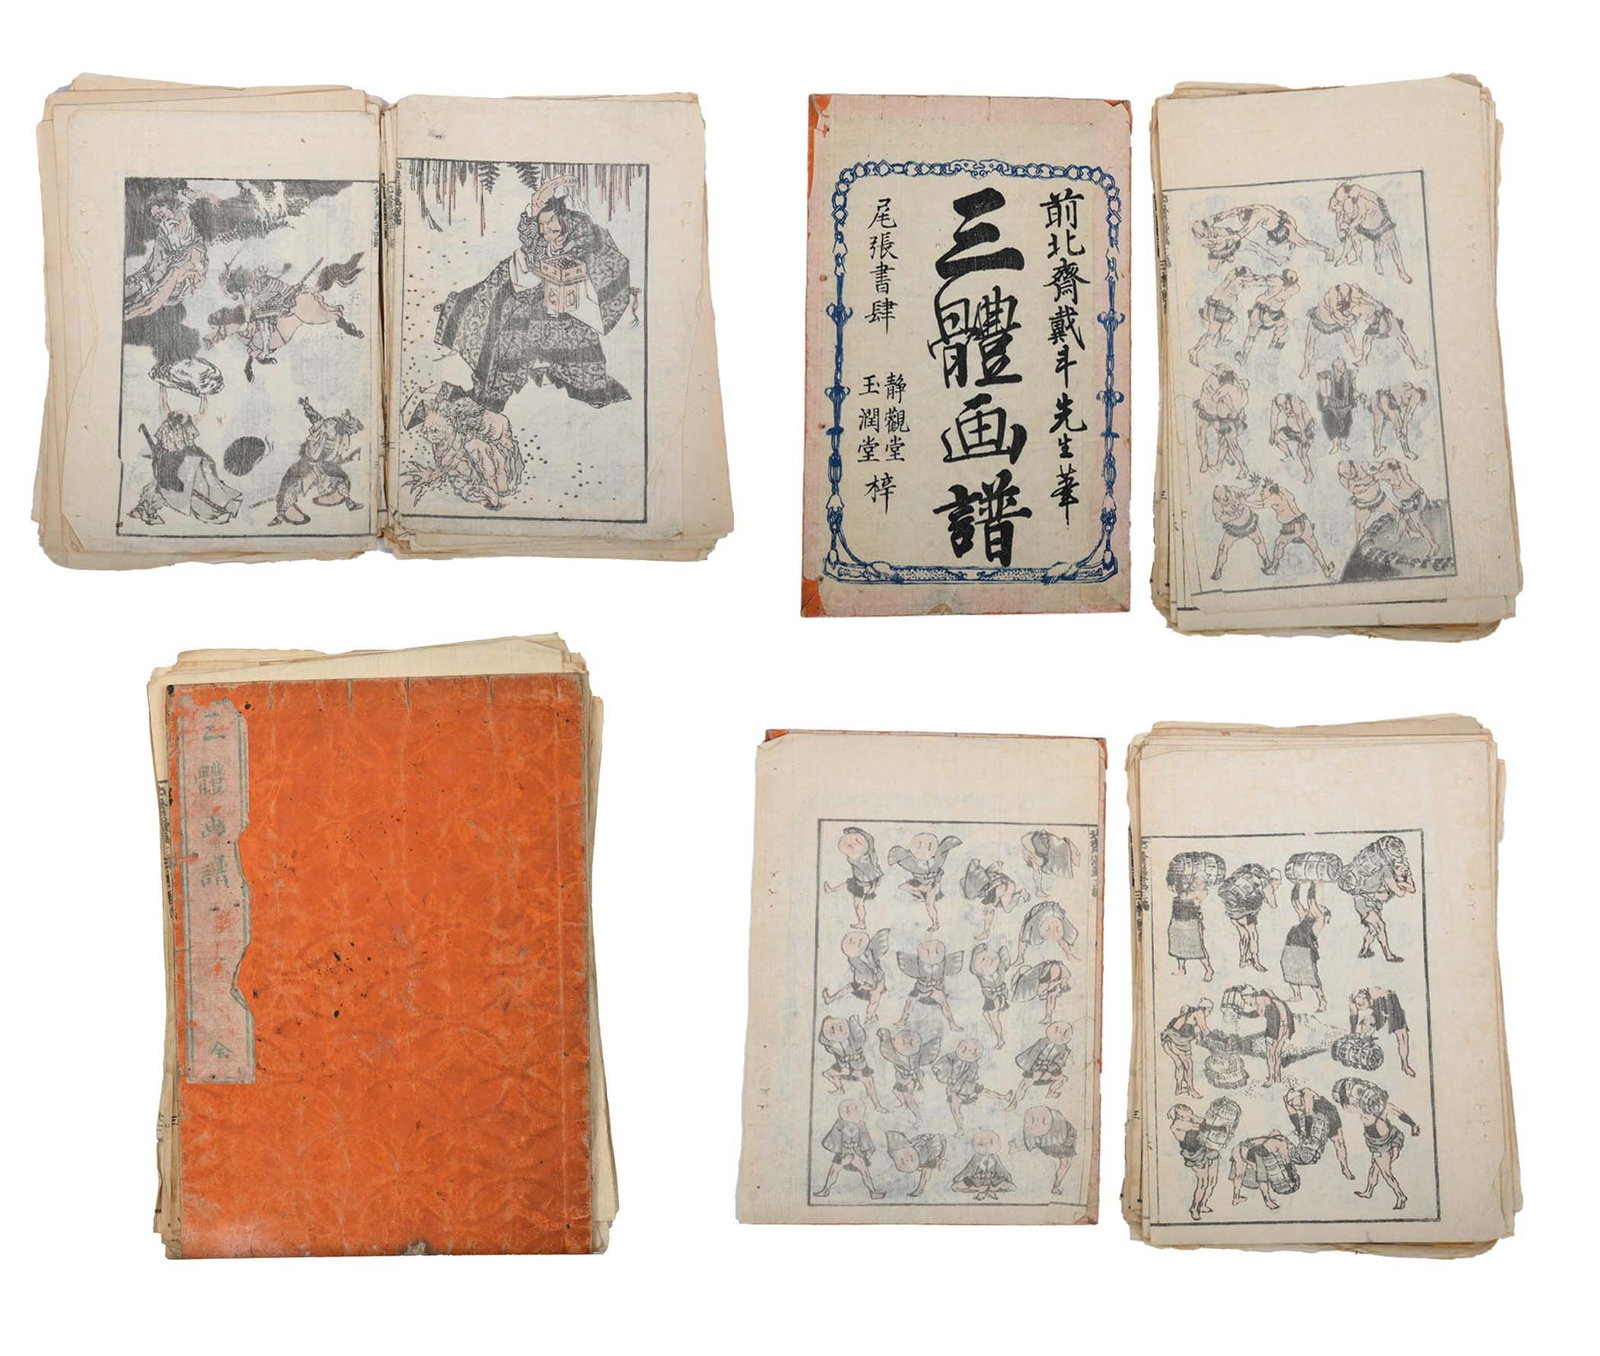 前北齋戴斗先生筆
三體画譜
尾張書肆
靜觀堂
玉潤堂
梓
三體画譜
全